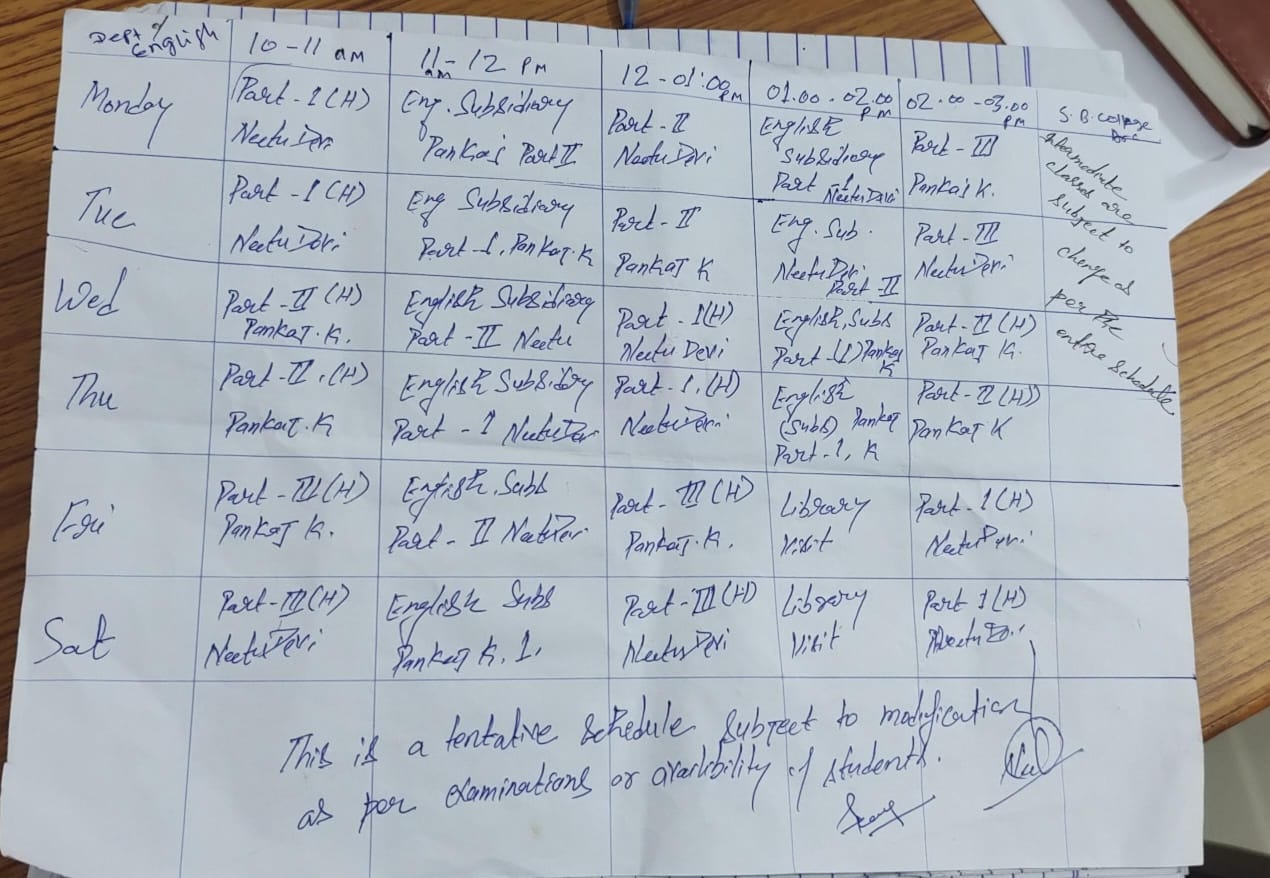 Dept of English
10-11 am
11-12 PM
am
12-01:00 PM
01.00-02.00 PM
02.00-03.00 PM
S.B. College
Monday
Part-1(H)
Neetu Devi
Eng. Subsidiary
Pankaj Part II
Part-II
Neetu Devi
English
Subsidiary
Part 1
Neetu Devi
Part-III
Pankaj K.
Tue
Part-1(H)
Neetu Devi
Eng Subsidiary
Part-1, Pankaj.K
Part-II
Pankaj K
Eng. Sub.
Neetu Devi
Part-II
Part-III
Neetu Devi
Wed
Part-II(H)
Pankaj.K.
English Subsidiary
Part-II Neetu
Part-1(H)
Neetu Devi
English, Subs
Part-(1) Pankaj
K
Part-II(H)
Pankaj K.
Thu
Part-II,(H)
Pankaj.K
English Subsidiary
Part-1 Neetu Devi
Part-1,(H)
Neetu Devi
English
(Subs) Pankaj
Part-1, K
Part-II(H)
Pankaj K
Fri
Part-III(H)
Pankaj K.
English, Subs
Part-II Neetu Devi
Part-III(H)
Pankaj.K.
Library
Visit
Part-1(H)
Neetu Devi
Sat
Part-III(H)
Neetu Devi
English Subs
Pankaj K, 1,
Part-III(H)
Neetu Devi
Library
Visit
Part 1(H)
Neetu D..
Intermediate
classes are
subject to
change as
per the
entire schedule
This is a tentative schedule subject to modification
as per examinations or availibility of students.